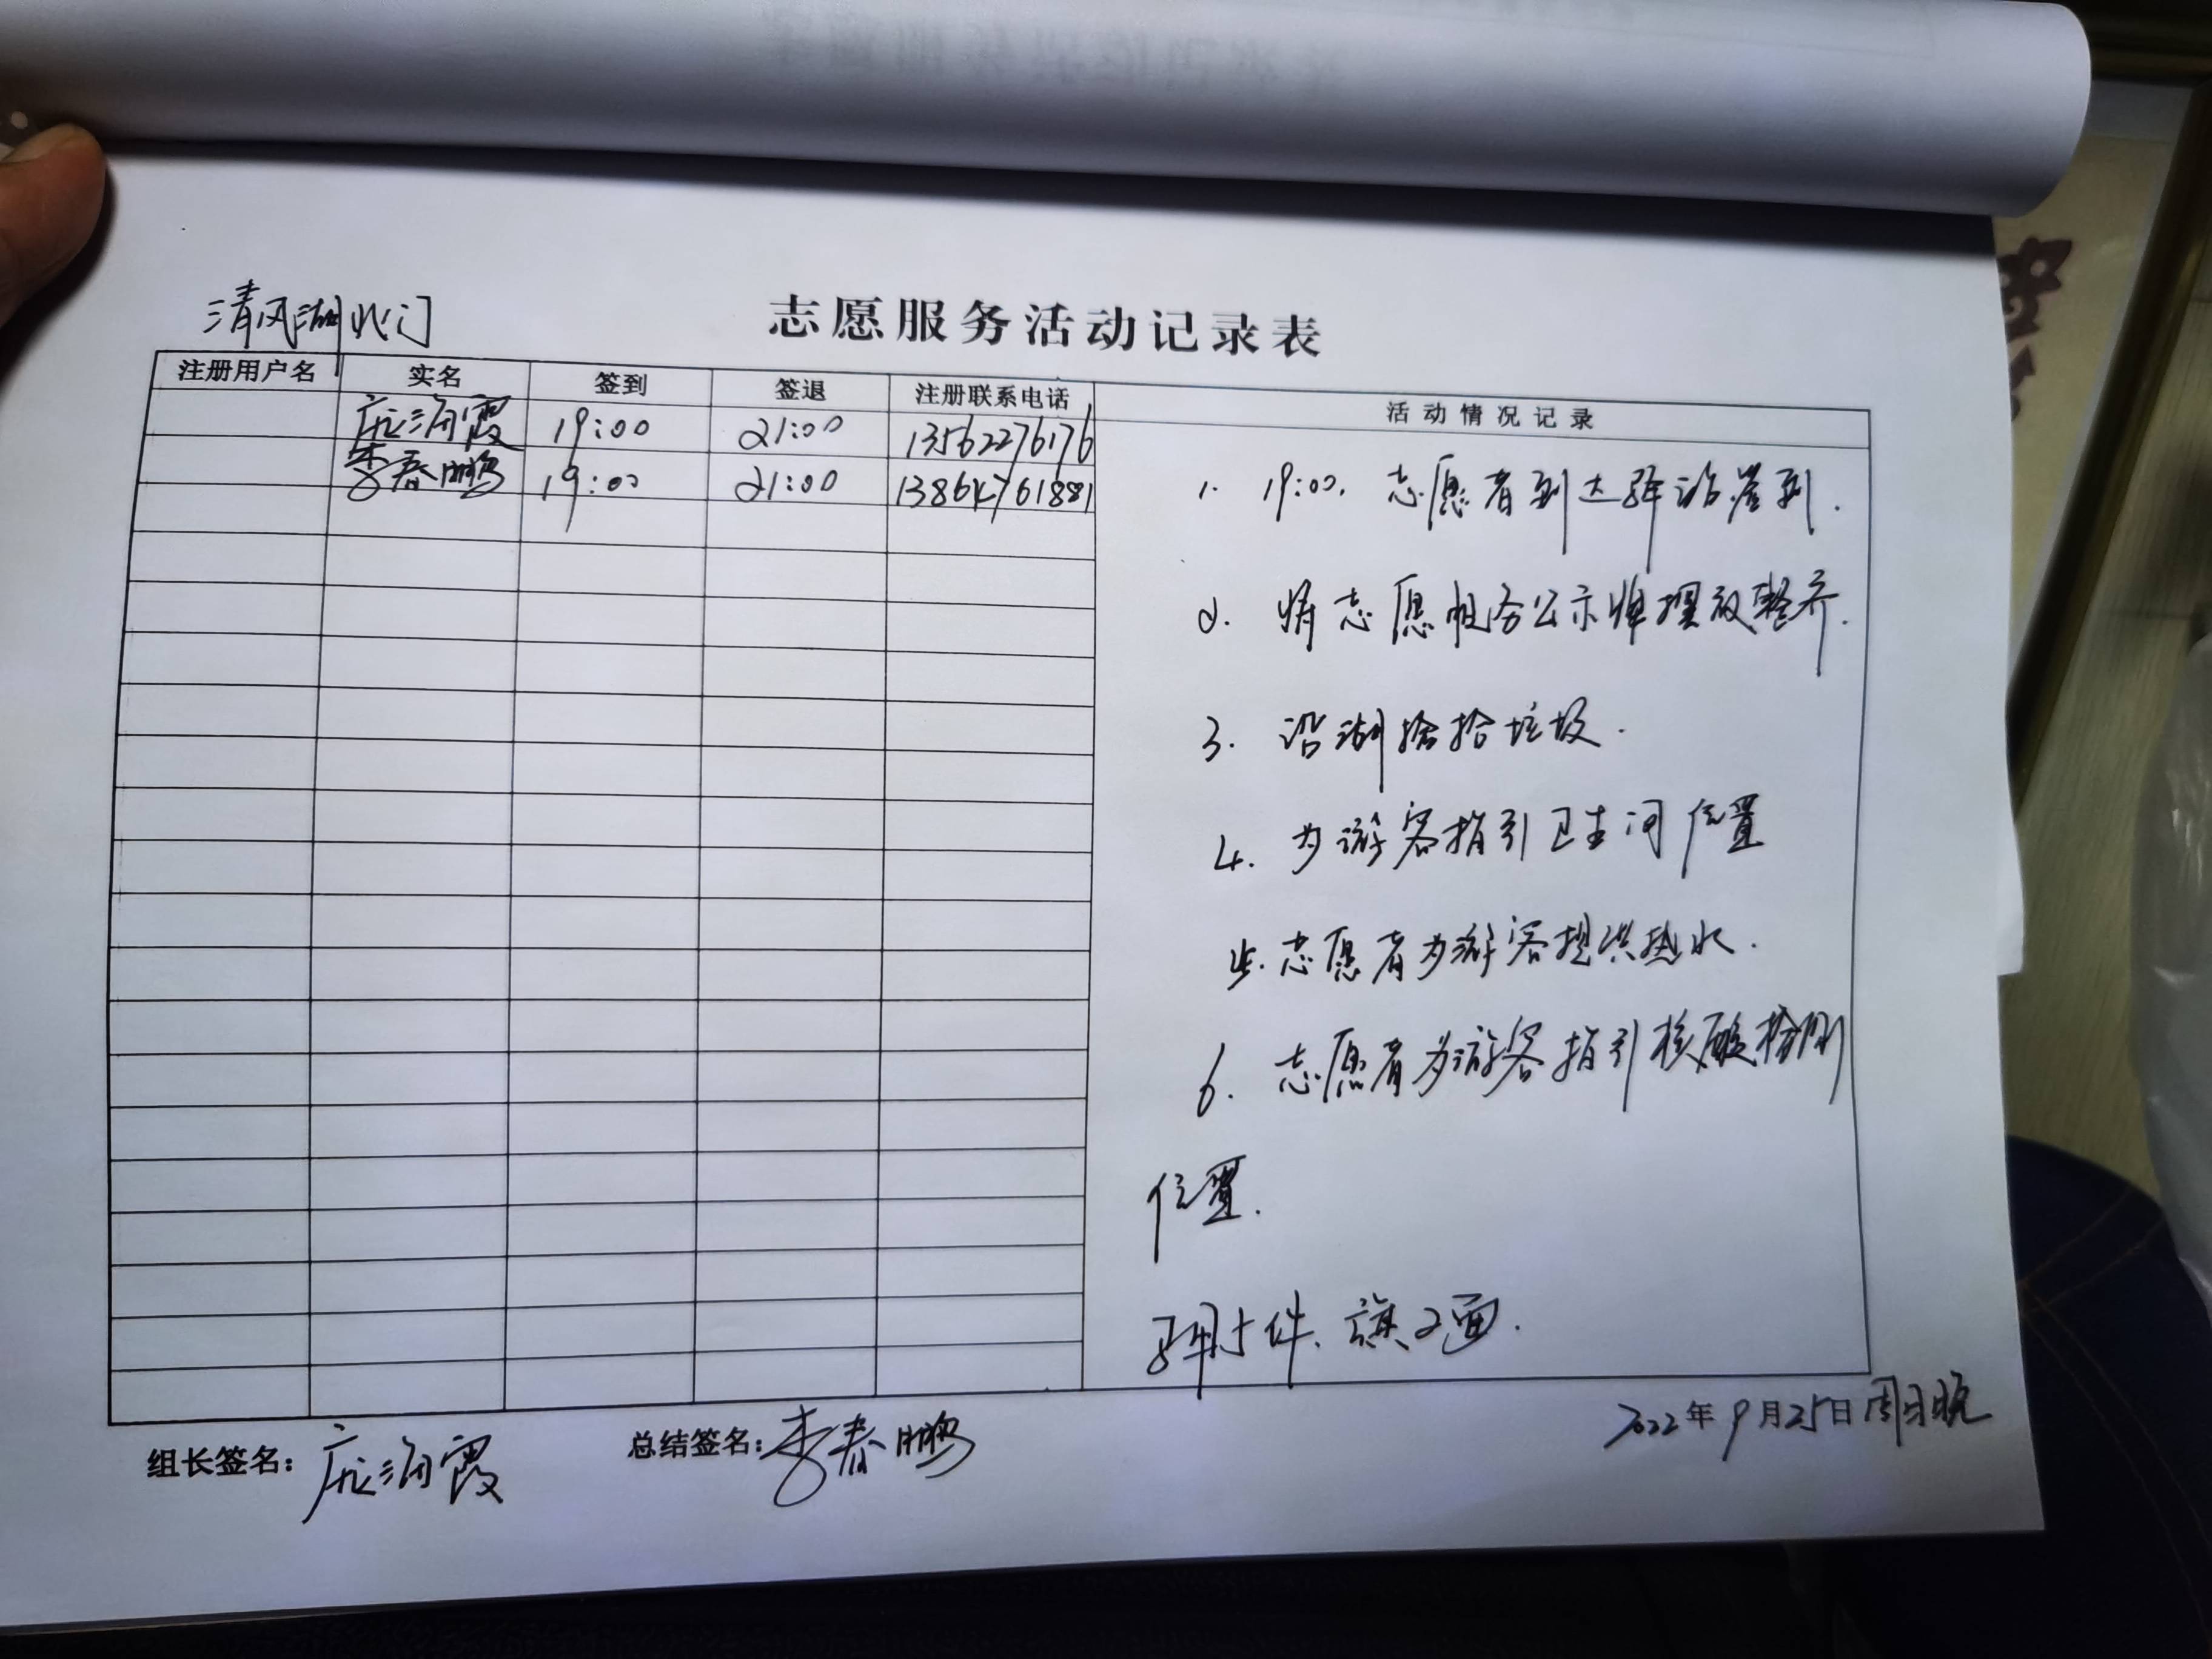 清风湖北门
志愿服务活动记录表
注册用户名 实名 签到 签退 注册联系电话 活动情况记录
庞海霞 19:00 21:00 13562276176
李春鹏 19:00 21:00 13864761881
1. 19:00. 志愿者到达驿站签到.
2. 将志愿服务公示牌摆放整齐.
3. 沿湖捡拾垃圾.
4. 为游客指引卫生间位置
5. 志愿者为游客提供热水.
6. 志愿者为游客指引核酸检测
位置.
5件. 旗2面.
2022年9月25日周日晚
组长签名: 庞海霞 总结签名: 李春鹏